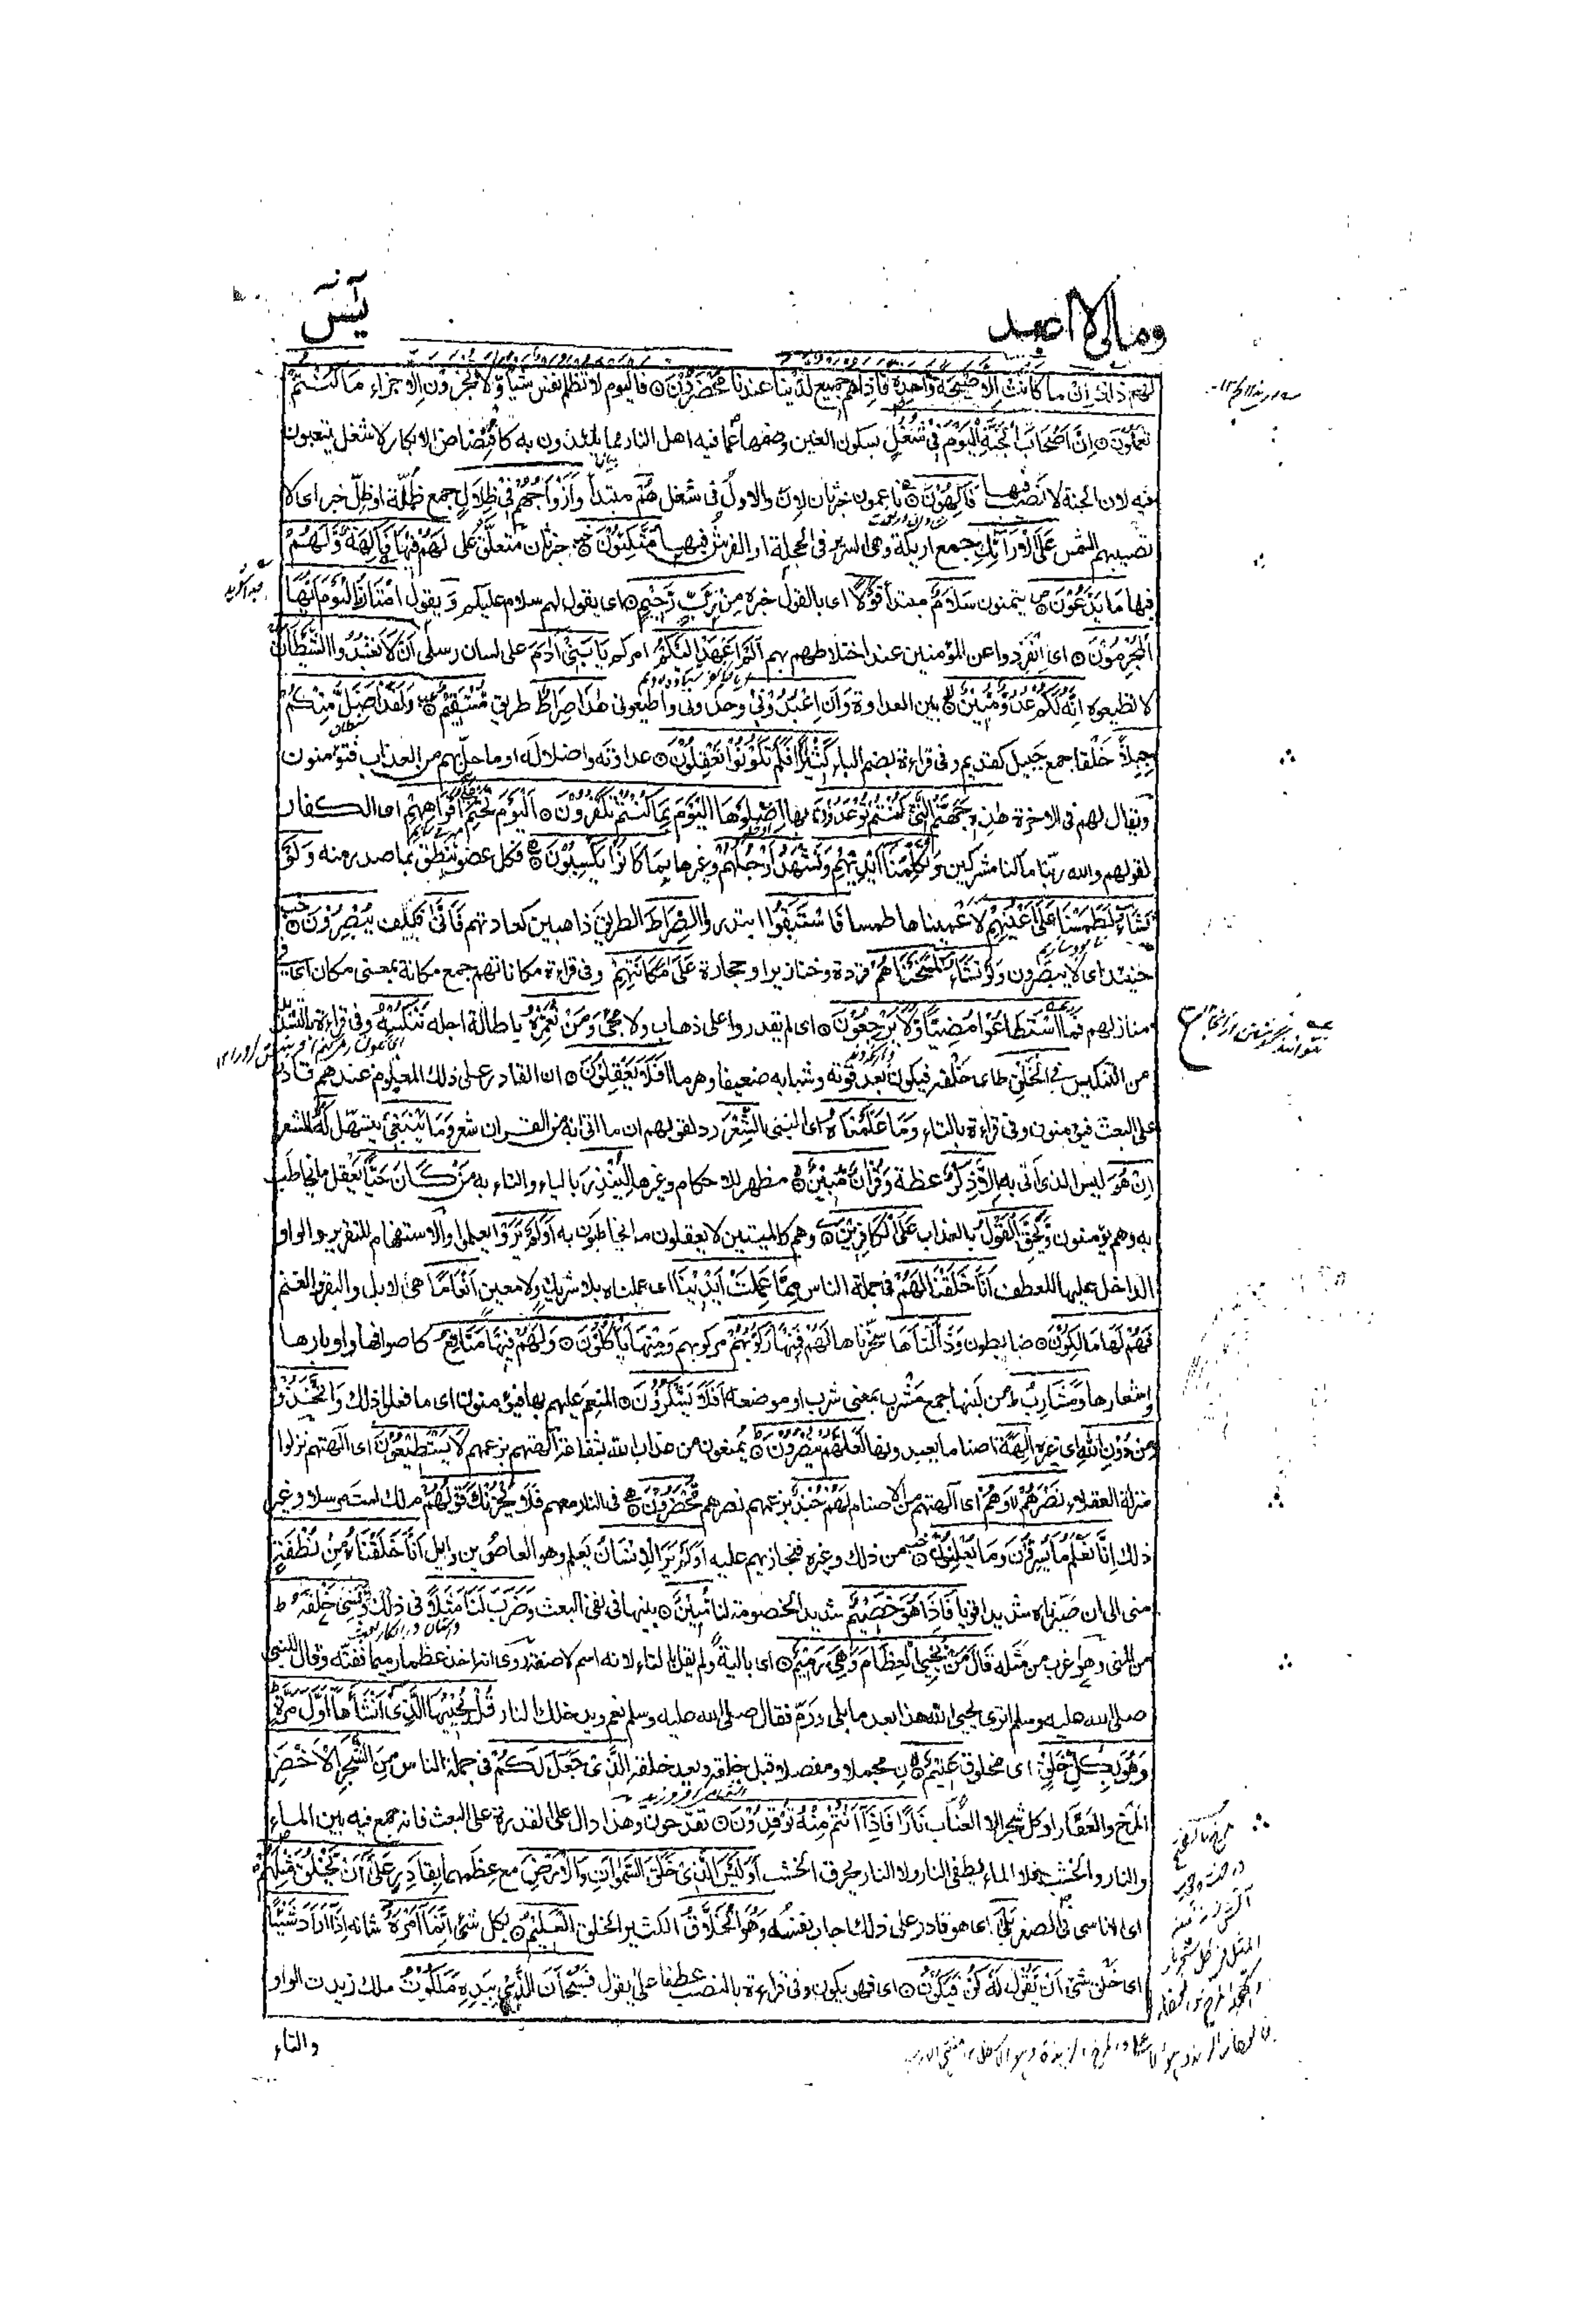 ومالي لا اعبد
يٓسٓ
لهم ذلك اِنْ ما كَانَتْ اِلَّا صَيْحَةً وَّاحِدَةً فَاِذَا هُمْ جَمِيعٌ لَّدَيْنَا عندنا مُحْضَرُوْنَ فاليوم لا تظلم نفس شيأ وَّلا تجزون الا جزاء ما كُنْتُمْ
تَعْمَلُوْنَ اِنَّ اَصْحَابَ الْجَنَّةِ الْيَوْمَ فِيْ شُغُلٍ بسكون الغين وضمها عما فيه اهل النار مما يلتذون به كافتضاض الابكار لا شغل يتعبون
فيه لان الجنة لا نصب فيها فَاكِهُوْنَ ناعمون خبر ثان لان والاول فى شغل هُمْ مبتدأ وَاَزْوَاجُهُمْ فِيْ ظِلَالٍ جمع ظُلّة او ظِلّ خبر اى لا
تصيبهم الشمس عَلَى الْاَرَائِكِ جمع اريكة وهى السرير فى الحجلة او الفرش فيها مُتَّكِئُوْنَ خبر ثان متعلّق على لَهُمْ فِيْهَا فَاكِهَةٌ وَّلَهُمْ
فيها مَا يَدَّعُوْنَ يتمنون سَلَامٌ مبتدأ قَوْلًا اى بالقول خبره مِنْ رَّبٍّ رَّحِيْمٍ اى يقول لهم سلام عليكم وَ يقول امْتَازُوا الْيَوْمَ اَيُّهَا
الْمُجْرِمُوْنَ اى انفردوا عن المؤمنين عند اختلاطهم بهم اَلَمْ اَعْهَدْ اِلَيْكُمْ امركم يَا بَنِيْ اٰدَمَ على لسان رسلى اَنْ لَّا تَعْبُدُوا الشَّيْطَانَ
لا تطيعوه اِنَّهُ لَكُمْ عَدُوٌّ مُّبِيْنٌ بين العداوة وَاَنِ اعْبُدُوْنِيْ وحدونى واطيعونى هٰذَا صِرَاطٌ طريق مُسْتَقِيْمٌ وَلَقَدْ اَضَلَّ مِنْكُمْ
جِبِلًّا خَلْقا جمع جَبيل كقديم وفى قراءة بضم الباء كَثِيْرًا اَفَلَمْ تَكُوْنُوْا تَعْقِلُوْنَ عداوته واضلاله او ما حل بهم من العذاب فتؤمنون
ويقال لهم فى الاخرة هٰذِهٖ جَهَنَّمُ الَّتِيْ كُنْتُمْ تُوْعَدُوْنَ بها اِصْلَوْهَا الْيَوْمَ بِمَا كُنْتُمْ تَكْفُرُوْنَ اَلْيَوْمَ نَخْتِمُ عَلٰى اَفْوَاهِهِمْ اى الكفار
لقولهم والله ربنا ما كنا مشركين وَتُكَلِّمُنَا اَيْدِيْهِمْ وَتَشْهَدُ اَرْجُلُهُمْ وغيرها بِمَا كَانُوْا يَكْسِبُوْنَ فكل عضو ينطق بما صدر منه وَلَوْ
نَشَاءُ لَطَمَسْنَا عَلٰى اَعْيُنِهِمْ لاعميناها طمسا فَاسْتَبَقُوا ابتدروا الصِّرَاطَ الطريق ذاهبين كعادتهم فَاَنّٰى فكيف يُبْصِرُوْنَ
حينئذ اى لا يبصرون وَلَوْ نَشَاءُ لَمَسَخْنَاهُمْ قردة وخنازير او حجارة عَلٰى مَكَانَتِهِمْ وفى قراءة مكاناتهم جمع مكانة بمعنى مكان اى فى
منازلهم فَمَا اسْتَطَاعُوْا مُضِيًّا وَّلَا يَرْجِعُوْنَ اى لم يقدروا على ذهاب ولا مجئ وَمَنْ نُّعَمِّرْهُ باطالة اجله نُنَكِّسْهُ وفى قراءة بالتشديد
من التنكيس فِي الْخَلْقِ اى خلقه فيكون بعد قوته وشبابه ضعيفا وهرما اَفَلَا يَعْقِلُوْنَ ان القادر على ذلك المعلوم عندهم قادر
على البعث فيؤمنون وفى قراءة بالتاء وَمَا عَلَّمْنَاهُ اى النبى الشِّعْرَ رد لقولهم ان ما اتى به من القران شعر وَمَا يَنْبَغِيْ يتسهل لَهُ الشعر
اِنْ هُوَ ليس الذى اتى به اِلَّا ذِكْرٌ عظة وَقُرْاٰنٌ مُّبِيْنٌ مظهر للاحكام وغيرها لِيُنْذِرَ بالياء والتاء به مَنْ كَانَ حَيًّا يعقل ما يخاطب
به وهم المؤمنون وَيَحِقَّ الْقَوْلُ بالعذاب عَلَى الْكَافِرِيْنَ وهم كالميتين لا يعقلون ما يخاطبون به اَوَلَمْ يَرَوْا يعلموا والاستفهام للتقرير والواو
الداخل عليها للعطف اَنَّا خَلَقْنَا لَهُمْ فى جملة الناس مِمَّا عَمِلَتْ اَيْدِيْنَا اى عملناه بلا شريك ولا معين اَنْعَامًا هى الابل والبقر والغنم
فَهُمْ لَهَا مَالِكُوْنَ ضابطون وَذَلَّلْنَاهَا سخرناها لَهُمْ فَمِنْهَا رَكُوْبُهُمْ مركوبهم وَمِنْهَا يَأْكُلُوْنَ وَلَهُمْ فِيْهَا مَنَافِعُ كاصوافها واوبارها
واشعارها وَمَشَارِبُ من لبنها جمع مَشْرب بمعنى شرب او موضعه اَفَلَا يَشْكُرُوْنَ المنعم عليهم بها فيؤمنون اى ما فعلوا ذلك وَاتَّخَذُوْا
مِنْ دُوْنِ اللهِ اى غيره اٰلِهَةً اصناما يعبدونها لَّعَلَّهُمْ يُنْصَرُوْنَ يُمنعون من عذاب الله بشفاعة الهتهم بزعمهم لَا يَسْتَطِيْعُوْنَ اى الهتهم نزلوا
منزلة العقلاء نَصْرَهُمْ وَهُمْ اى آلهتهم من الاصنام لَهُمْ جُنْدٌ بزعمهم نصرهم مُّحْضَرُوْنَ فى النار معهم فَلَا يَحْزُنْكَ قَوْلُهُمْ لك لست مرسلا وغير
ذلك اِنَّا نَعْلَمُ مَا يُسِرُّوْنَ وَمَا يُعْلِنُوْنَ من ذلك وغيره فنجازيهم عليه اَوَلَمْ يَرَ الْاِنْسَانُ يعلم وهو العاصى بن وايل اَنَّا خَلَقْنَاهُ مِنْ نُّطْفَةٍ
منى الى ان صيرناه شديدا قويا فَاِذَا هُوَ خَصِيْمٌ شديد الخصومة لنا مُّبِيْنٌ بينها فى نفى البعث وَضَرَبَ لَنَا مَثَلًا فى ذلك وَّنَسِيَ خَلْقَهُ ط
من المنى وهو اغرب من مثله قَالَ مَنْ يُّحْيِي الْعِظَامَ وَهِيَ رَمِيْمٌ اى بالية ولم يقل بالتاء لانه اسم لا صفة روى انه اخذ عظما رميما ففتّه وقال للنبى
صلى الله عليه وسلم اترى يحيى الله هذا بعد ما بلى ورَمّ فقال صلى الله عليه وسلم نعم ويدخلك النار قُلْ يُحْيِيْهَا الَّذِيْ اَنْشَأَهَا اَوَّلَ مَرَّةٍ
وَهُوَ بِكُلِّ خَلْقٍ اى مخلوق عَلِيْمٌ مجملا ومفصلا قبل خلقه وبعد خلقه الَّذِيْ جَعَلَ لَكُمْ فى جملة الناس مِنَ الشَّجَرِ الْاَخْضَرِ
المَرْخ والعَفَار او كل شجر الا العنّاب نَارًا فَاِذَا اَنْتُمْ مِنْهُ تُوْقِدُوْنَ تقدحون وهذا دال على القدرة على البعث فانه جمع فيه بين الماء
والنار والخشب فلا الماء يطفئ النار ولا النار يحرق الخشب اَوَلَيْسَ الَّذِيْ خَلَقَ السَّمٰوَاتِ وَالْاَرْضَ مع عظمهما بِقَادِرٍ عَلٰى اَنْ يَّخْلُقَ مِثْلَهُمْ
اى الاناسى فى الصغر بَلٰى اى هو قادر على ذلك اجاب نفسه وَهُوَ الْخَلَّاقُ الكثير الخلق الْعَلِيْمُ بكل شئ اِنَّمَا اَمْرُهُ شانه اِذَا اَرَادَ شَيْئًا
اى خلق شئ اَنْ يَقُوْلَ لَهُ كُنْ فَيَكُوْنُ اى فهو يكون وفى قراءة بالنصب عطفا على يقول فَسُبْحَانَ الَّذِيْ بِيَدِهٖ مَلَكُوْتُ ملك زيدت الواو
والتاء